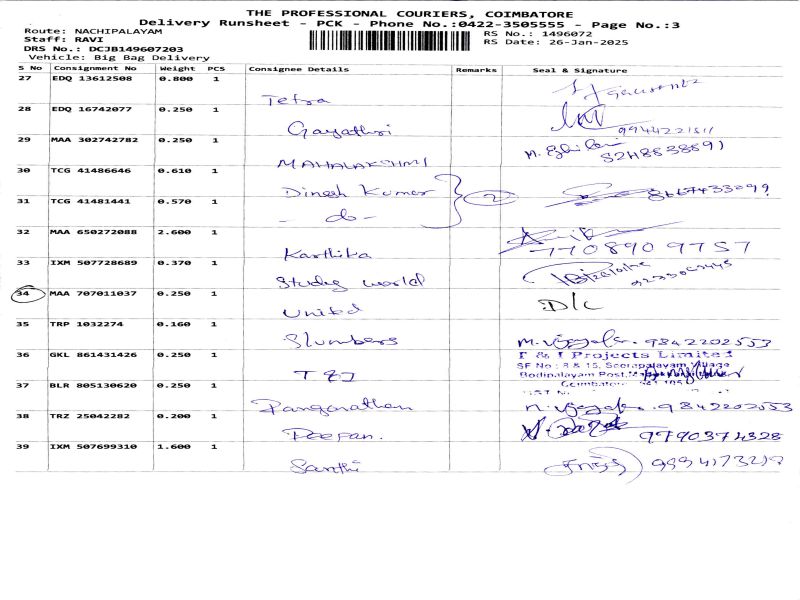 THE PROFESSIONAL COURIERS, COIMBATORE
Delivery Runsheet - PCK - Phone No.:0422-3505555 - Page No.:3
Route: NACHIPALAYAM
Staff: RAVI
DRS No.: DCJB149607203
Vehicle: Big Bag Delivery
RS No.: 1496072
RS Date: 26-Jan-2025
S No Consignment No Weight PCS Consignee Details Remarks Seal & Signature
27 EDQ 13612508 0.800 1
Tetra
28 EDQ 16742077 0.250 1
Gayathri
29 MAA 302742782 0.250 1
MAHALAKSHMI
30 TCG 41486646 0.610 1
Dinesh Kumar 2
31 TCG 41481441 0.570 1
- do -
32 MAA 650272088 2.600 1
Karthika 7708909757
33 IXM 507728689 0.370 1
Study world
34 MAA 707011037 0.250 1 D/L
United
35 TRP 1032274 0.160 1
Slumbers 9842202553
36 GKL 861431426 0.250 1
T & I Projects Limited
SF No : 8 & 15, Seerapalayam Village
Bodipalayam Post,
Coimbatore
T & I
37 BLR 805130620 0.250 1
Ranganathan 9842202553
38 TRZ 25042282 0.200 1
Deepan. 9790374328
39 IXM 507699310 1.600 1
Santhi 9994173219